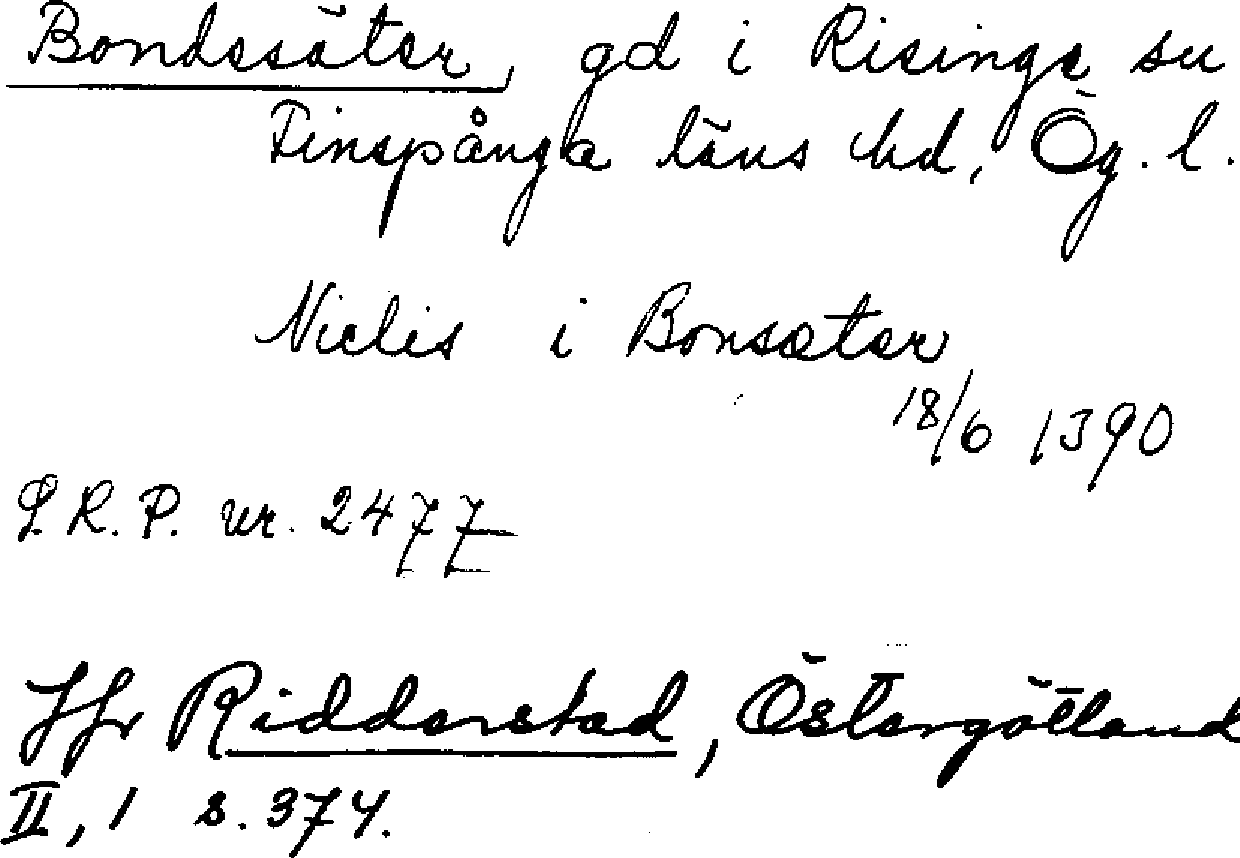 Bondesäter, gd i Risinge sn
Finspånga läns hd, Ög. l.
Niclis i Bonsæter
18/6 1390
S.R.P. nr. 2477
Jfr Ridderstad, Östergötland
II, 1 s. 374.